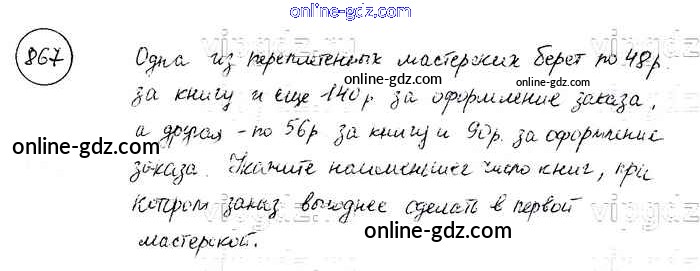 online-gdz.com
867 Одна из переплетенных мастерских берет по 48р.
за книгу и еще 140р за оформление заказа,
online-gdz.com
а другая - по 56р за книгу и 90р. за оформление
online-gdz.com
заказа. Укажите наименьшее число книг, при
online-gdz.com
котором заказ выгоднее сделать в первой
мастерской.
online-gdz.com